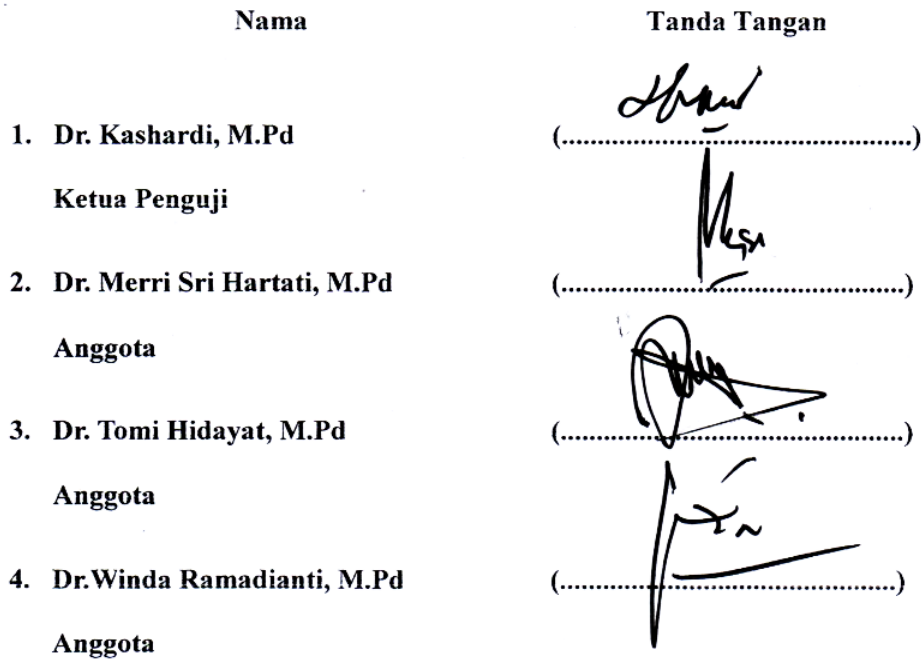 Nama Tanda Tangan
1. Dr. Kashardi, M.Pd (..............................................)
Ketua Penguji
2. Dr. Merri Sri Hartati, M.Pd (..............................................)
Anggota
3. Dr. Tomi Hidayat, M.Pd (..............................................)
Anggota
4. Dr.Winda Ramadianti, M.Pd (..............................................)
Anggota